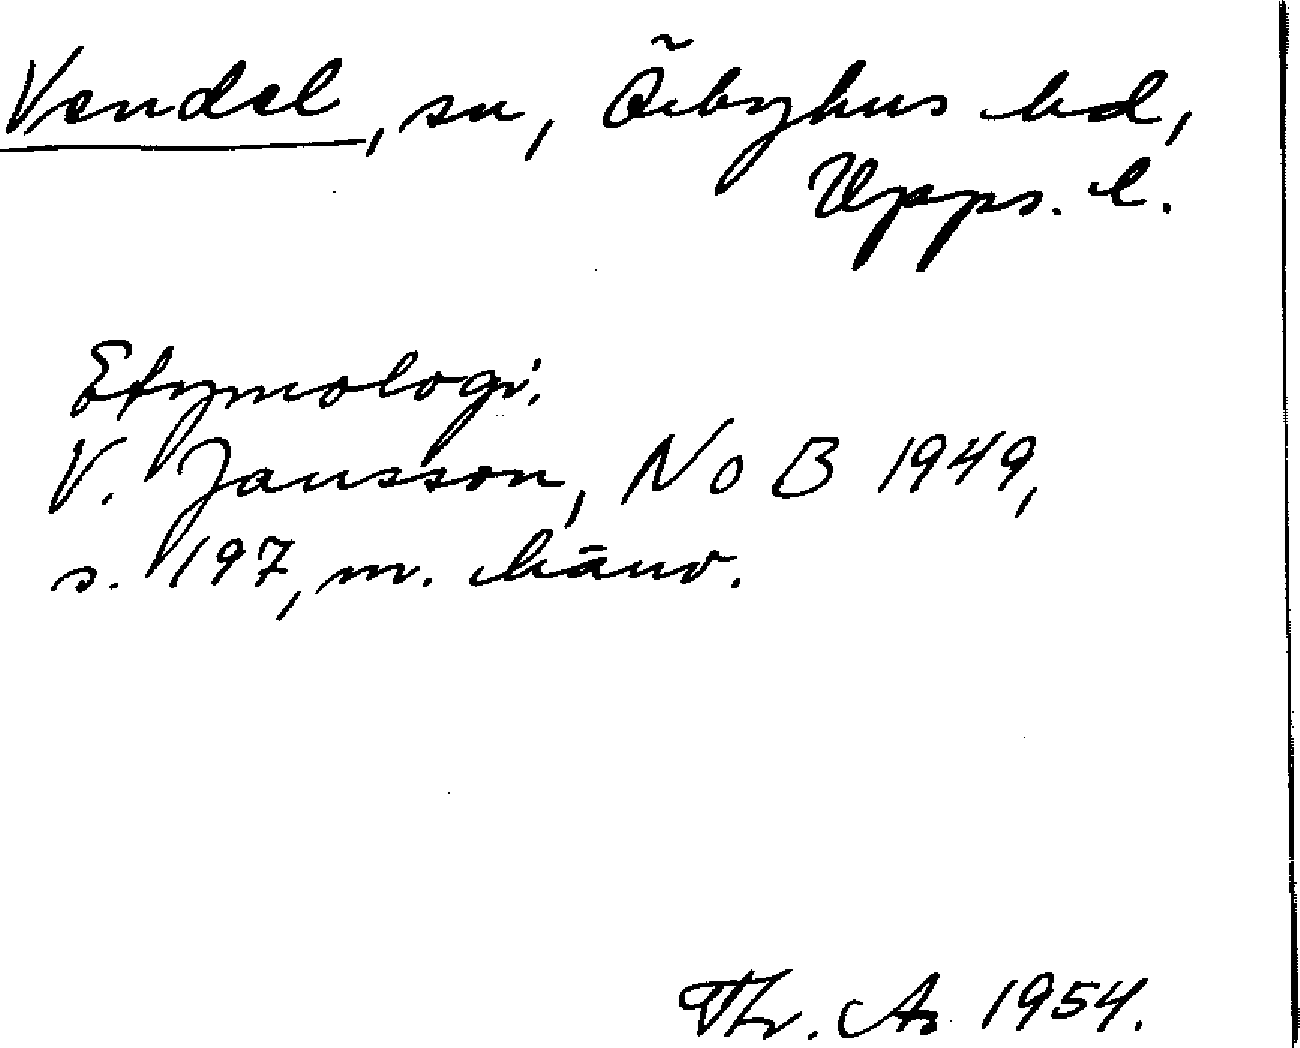 Vendel, sn, Örbyhus hd,
Upps. l.
Etymologi.
V. Jansson, NoB 1949,
s. 197, m. hänv.
Th. A. 1954.